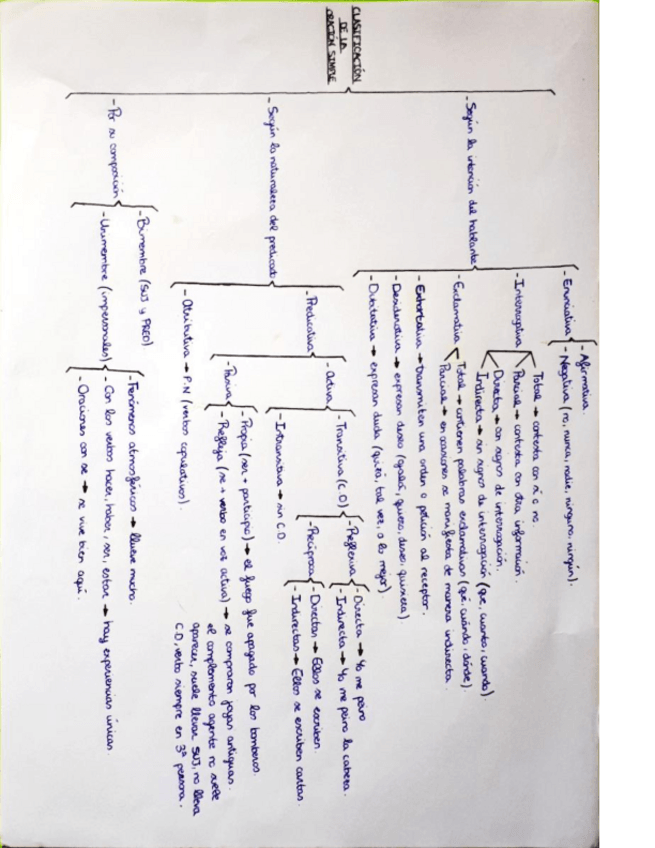 CLASIFICACIÓN
DE LA
ORACIÓN SIMPLE
- Según la intención del hablante
- Enunciativa
- Afirmativa.
- Negativa (no, nunca, nadie, ninguno, ningún).
- Interrogativa
Total → contesta con sí o no.
Parcial → contesta con otra información.
Directa → con signos de interrogación.
Indirecta → sin signos de interrogación (que, cuanto, cuando).
- Exclamativa
Total → contienen palabras exclamativas (qué, cuándo, dónde).
Parcial → en ocasiones se manifiesta de manera indirecta.
- Exhortativa → transmiten una orden o petición al receptor.
- Desiderativa → expresan deseo (ojalá, quiero, deseo, quisiera).
- Dubitativa → expresan duda (quizá, tal vez, a lo mejor).
- Según la naturaleza del predicado
- Predicativa
- Activa
- Transitiva (C.D)
- Reflexiva
- Directa → Yo me peino
- Indirecta → Yo me peino la cabeza.
- Recíproca
- Directas → Ellos se escriben.
- Indirectas → Ellos se escriben cartas.
- Intransitiva → sin C.D.
- Pasiva
- Propia (ser + participio) → el fuego fue apagado por los bomberos.
- Refleja (se + verbo en voz activa) → se compraron joyas antiguas.
el complemento agente no suele
aparecer, suele llevar SUJ, no lleva
C.D, verbo siempre en 3ª persona.
- Atributiva → P.N (verbos copulativos).
- Por su composición
- Bimembre (SUJ y PRED).
- Unimembre (impersonales)
- Fenómenos atmosféricos → llueve mucho.
- Con los verbos hacer, haber, ser, estar → hay experiencias únicas.
- Oraciones con se → se vive bien aquí.